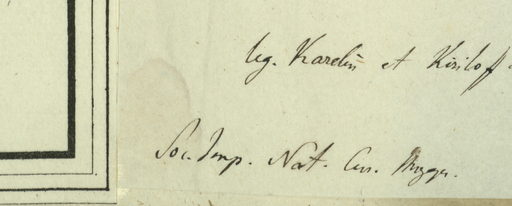 leg. Karelin et Kiriloff
Soc. Imp. Nat. Cur.